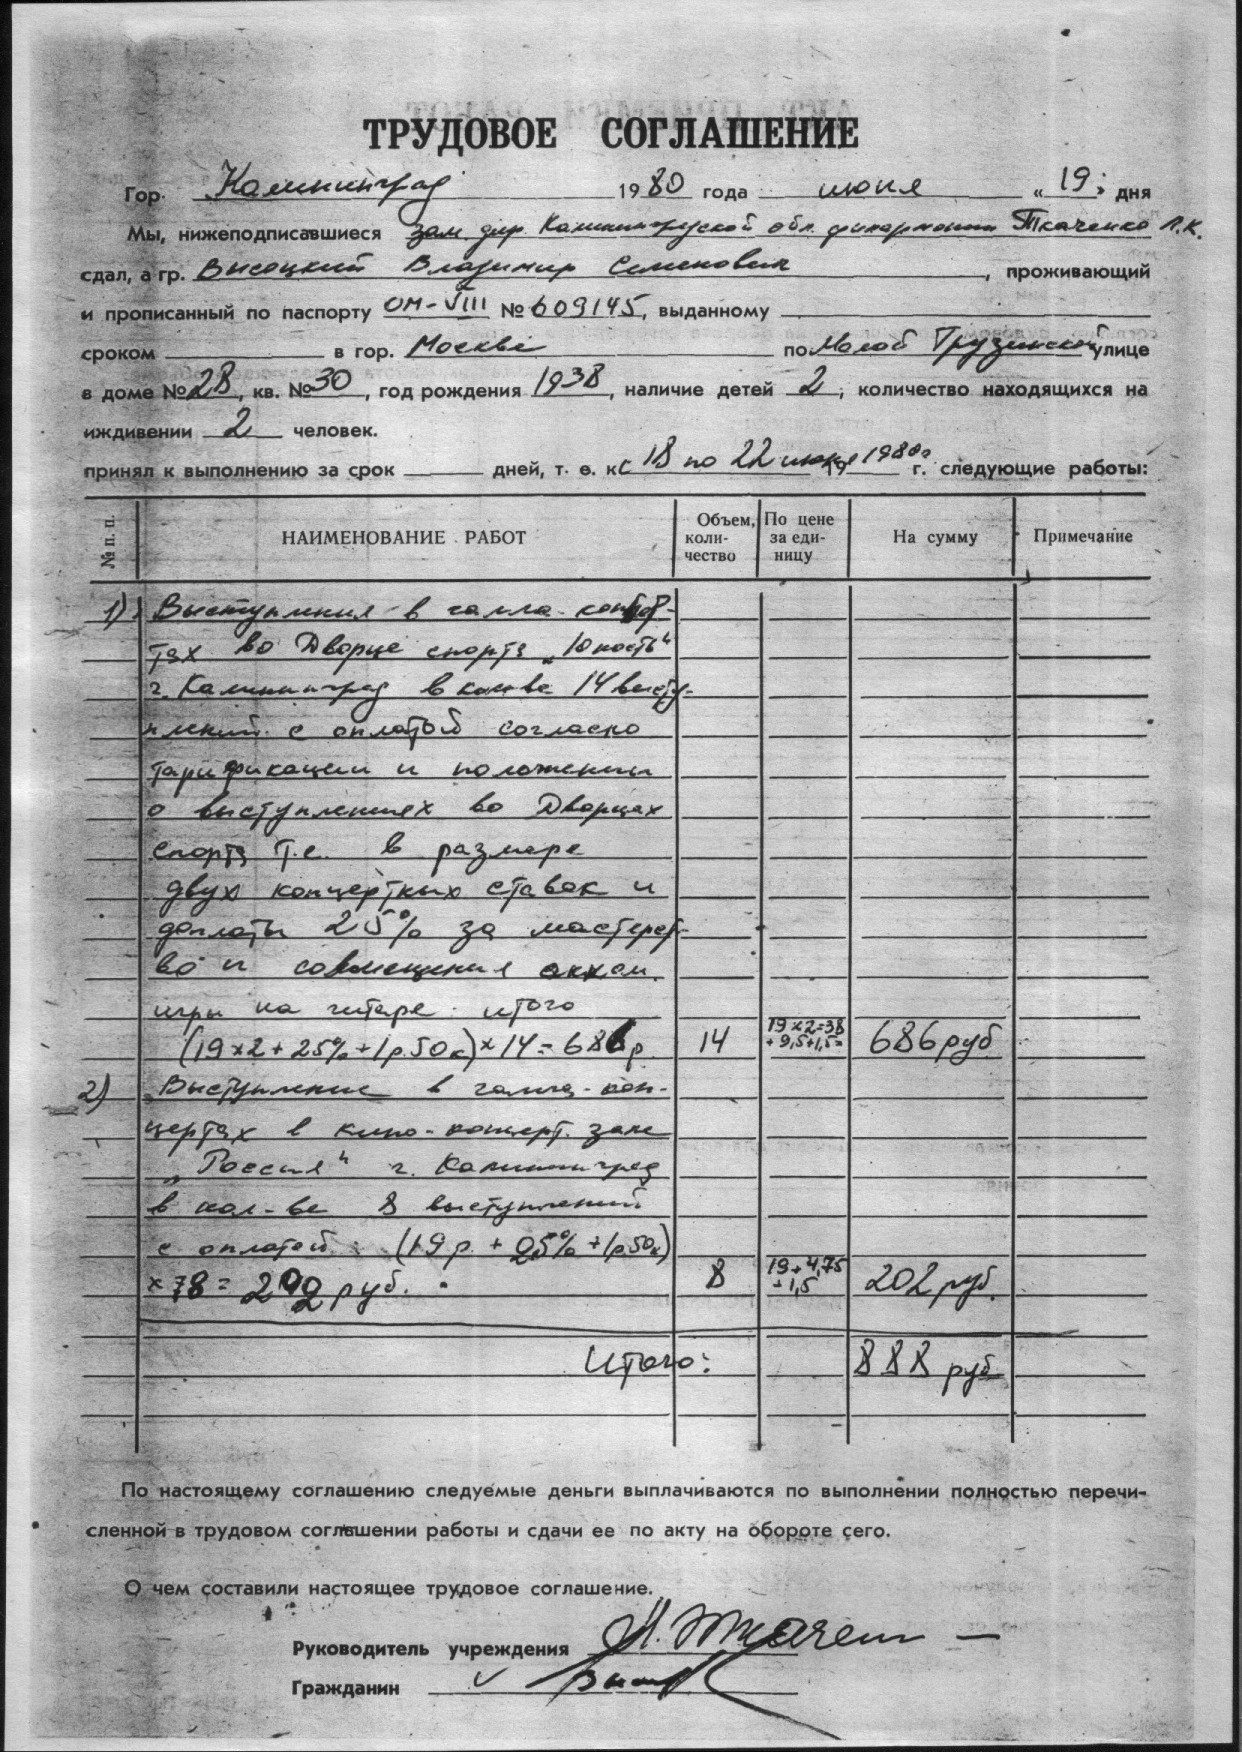 ТРУДОВОЕ СОГЛАШЕНИЕ
Гор. Калининград 1980 года июня «19» дня
Мы, нижеподписавшиеся зам. дир. Калининградской обл. филармонии Ткаченко Л.К.
сдал, а гр. Высоцкий Владимир Семенович, проживающий
и прописанный по паспорту ОМ-VIII № 609145, выданному
сроком в гор. Москве по Малой Грузинской улице
в доме № 28, кв. № 30, год рождения 1938, наличие детей 2, количество находящихся на
иждивении 2 человек.
принял к выполнению за срок дней, т. е. к с 18 по 22 июня 1980г 19 г. следующие работы:
№ п. п. НАИМЕНОВАНИЕ РАБОТ Объем, коли- чество По цене за еди- ницу На сумму Примечание
1) Выступления в галла-концер-
тах во Дворце спорта „Юность“
г. Калининград в кол-ве 14 высту-
плений с оплатой согласно
тарификации и положении
о выступлениях во Дворцах
спорта т.е. в размере
двух концертных ставок и
доплаты 25% за мастерст-
во и совмещения акком.
игры на гитаре. итого
(19×2+25%+1р.50к)×14=686р 14 19×2=38 +9,5+1,5= 686 руб
2) Выступление в галла-кон-
цертах в кино-концерт. зале
„Россия“ г. Калининград
в кол-ве 8 выступлений
с оплатой (19 р. + 25% + 1р.50к)
×8=202 руб. 8 19+4,75 +1,5 202 руб.
Итого: 888 руб
По настоящему соглашению следуемые деньги выплачиваются по выполнении полностью перечи-
сленной в трудовом соглашении работы и сдачи ее по акту на обороте сего.
О чем составили настоящее трудовое соглашение.
Руководитель учреждения Л. Ткачен
Гражданин Высо